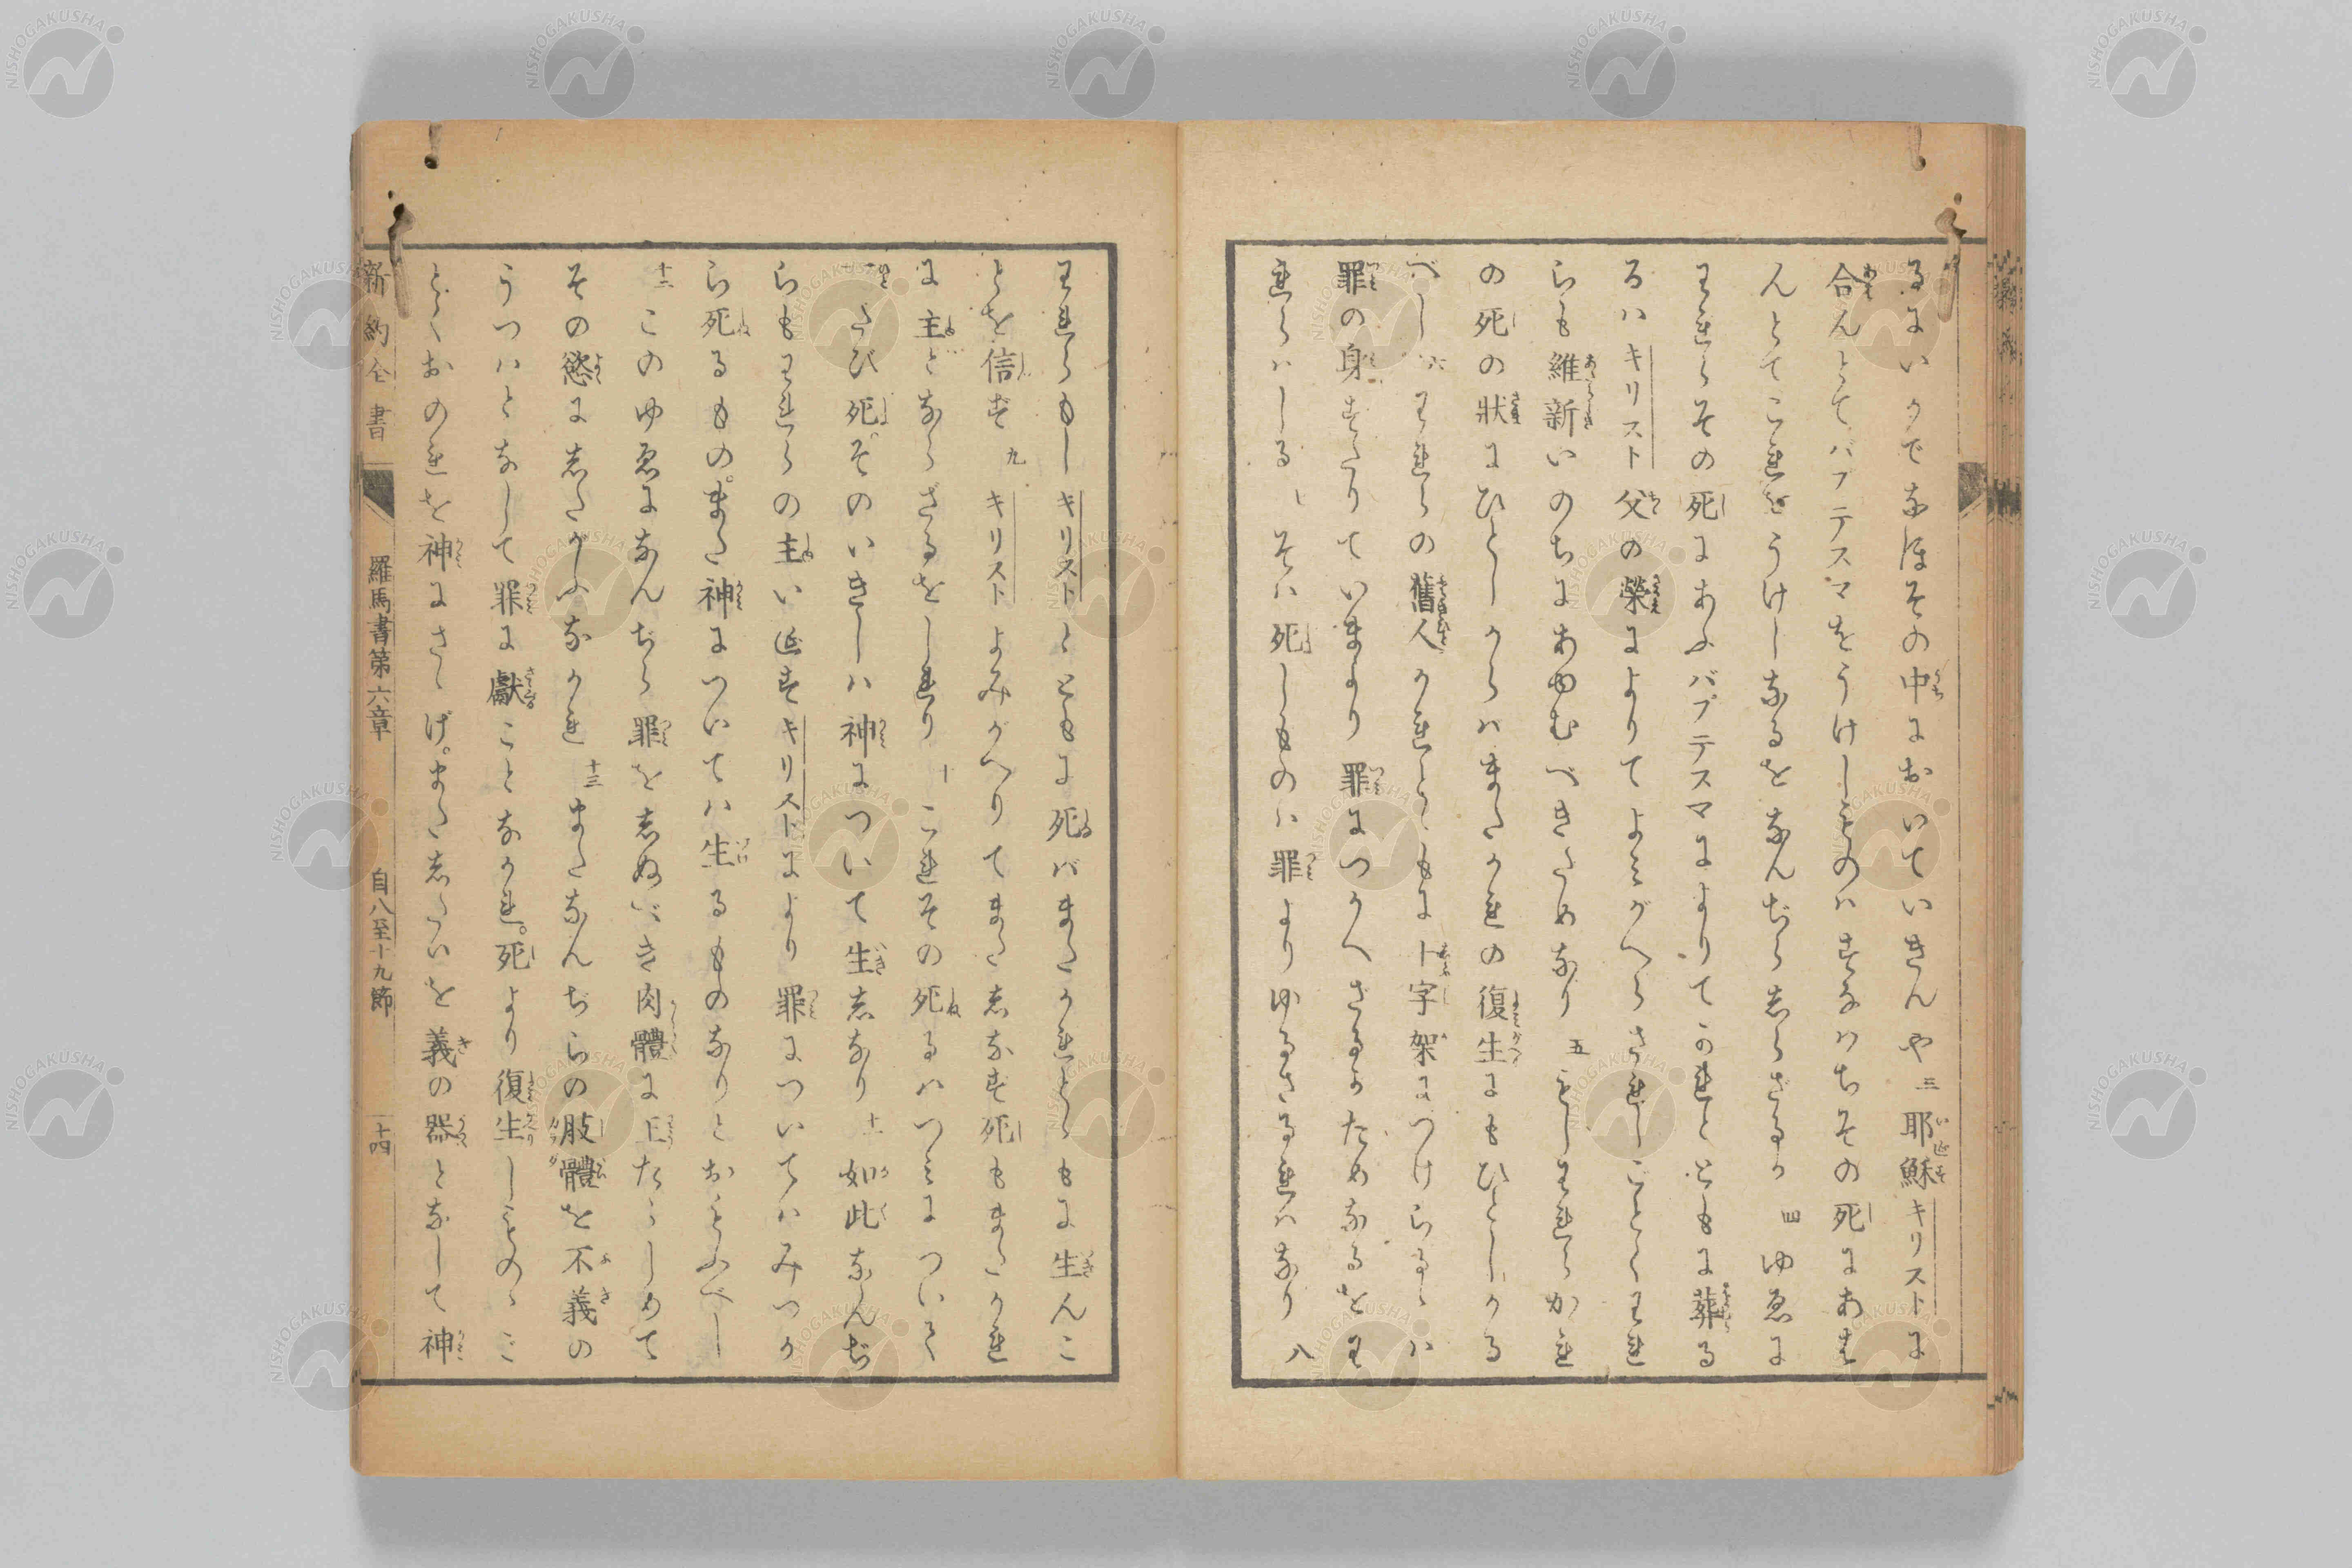 るにいかでなほその中においていきんや三耶穌キリストに
合んとてバプテスマをうけしものハすなハちその死にあは
んとてこれをうけしなるをなんぢらしらざるか四ゆゑに
われらその死にあふバプテスマによりてかれとともに葬る
るハキリスト父の榮によりてよみがへらされしごとくわれ
らも維新いのちにあゆむべきためなり五もしわれらかれ
の死の狀にひとしからハまたかれの復生にもひとしかる
べし六われらの舊人かれとゝもに十字架につけらるゝハ
罪の身すたりていまより罪につかへざるかためなるをわ
れらハしる七そハ死しものハ罪よりゆるさるれハなり八
われらもしキリストとともに死バまたかれとゝもに生んこ
とを信ず九キリストよみがへりてまたしなず死もまたかれ
に主とならざるをしれり十これその死るハつみについて
一たび死そのいきしハ神について生しなり十一如此なんぢ
らもわれらの主いエスキリストにより罪についてハみつか
ら死るものまた神についてハ生るものなりとおもふべし
十二このゆゑになんぢら罪をしぬべき肉體に王たらしめて
その慾にしたがふなかれ十三またなんぢらの肢體を不義の
うつハとなして罪に獻ことなかれ。死より復生しものゝご
とくおのれを神にさゝげ。またしたいを義の器となして神
新約全書 羅馬書第六章 自八至十九節 十四
NISHOGAKUSHA